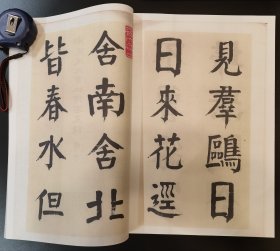 見羣鷗日
日來花逕
舍南舍北
皆春水但